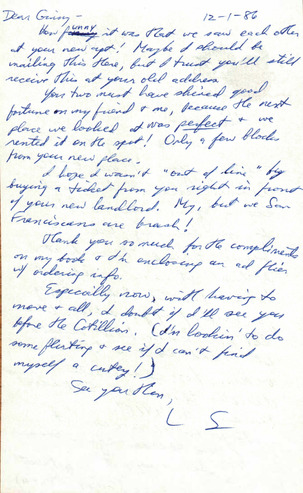 Dear Ginny - 12-1-86
How funny it was that we saw each other
at your new apt! Maybe I should be
mailing this there, but I trust you'll still
receive this at your old address.
You two must have shined good
fortune on my friend & me, because the next
place we looked at was perfect & we
rented it on the spot! Only a few blocks
from your new place.
I hope I wasn't "out of line" by
buying a ticket from you right in front
of your new landlord. My, but we San
Franciscans are brash!
Thank you so much for the compliments
on my book & I'm enclosing an ad flier
w/ ordering info.
Especially now, with having to
move & all, I doubt if I'll see you
before the Cotillion. (I'm lookin' to do
some flirting & see if I can't find
myself a cutey!)
See you then,
L S